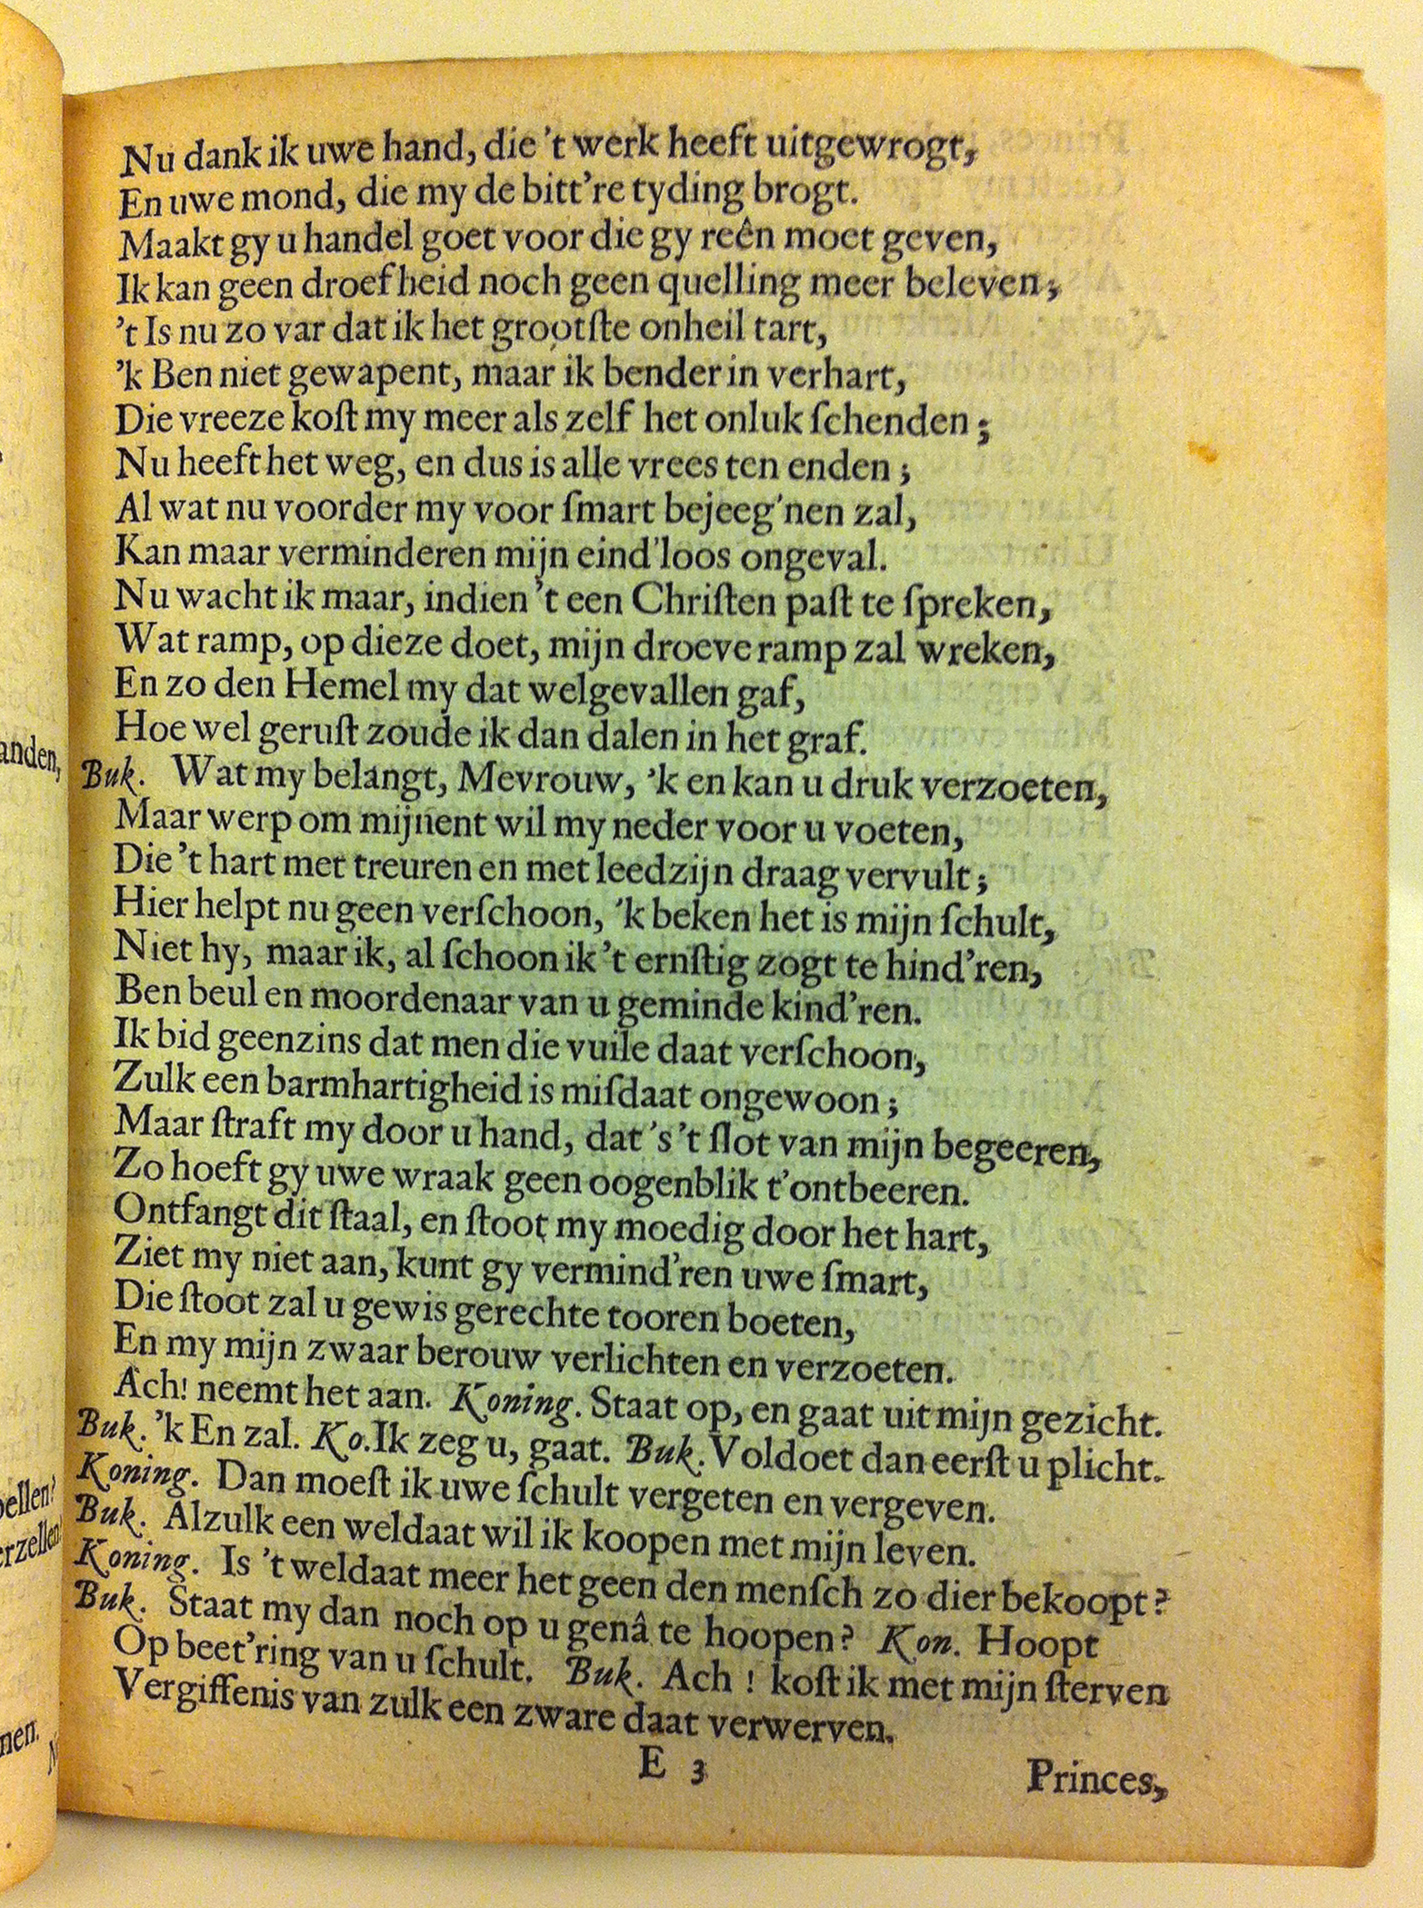 Nu dank ik uwe hand, die 't werk heeft uitgewrogt,
En uwe mond, die my de bitt're tyding brogt.
Maakt gy u handel goet voor die gy reên moet geven,
Ik kan geen droefheid noch geen quelling meer beleven;
't Is nu zo var dat ik het grootſte onheil tart,
'k Ben niet gewapent, maar ik bender in verhart,
Die vreeze koſt my meer als zelf het onluk ſchenden;
Nu heeft het weg, en dus is alle vrees ten enden;
Al wat nu voorder my voor ſmart bejeeg'nen zal,
Kan maar verminderen mijn eind'loos ongeval.
Nu wacht ik maar, indien 't een Chriſten paſt te ſpreken,
Wat ramp, op dieze doet, mijn droeve ramp zal wreken,
En zo den Hemel my dat welgevallen gaf,
Hoe wel geruſt zoude ik dan dalen in het graf.
anden,
Buk. Wat my belangt, Mevrouw, 'k en kan u druk verzoeten,
Maar werp om mijnent wil my neder voor u voeten,
Die 't hart met treuren en met leedzijn draag vervult;
Hier helpt nu geen verſchoon, 'k beken het is mijn ſchult,
Niet hy, maar ik, al ſchoon ik 't ernſtig zogt te hind'ren,
Ben beul en moordenaar van u geminde kind'ren.
Ik bid geenzins dat men die vuile daat verſchoon,
Zulk een barmhartigheid is miſdaat ongewoon;
Maar ſtraft my door u hand, dat 's 't ſlot van mijn begeeren,
Zo hoeft gy uwe wraak geen oogenblik t'ontbeeren.
Ontfangt dit ſtaal, en ſtoot my moedig door het hart,
Ziet my niet aan, kunt gy vermind'ren uwe ſmart,
Die ſtoot zal u gewis gerechte tooren boeten,
En my mijn zwaar berouw verlichten en verzoeten.
Ach! neemt het aan. Koning. Staat op, en gaat uit mijn gezicht.
Buk. 'k En zal. Ko. Ik zeg u, gaat. Buk. Voldoet dan eerſt u plicht.
Koning. Dan moeſt ik uwe ſchult vergeten en vergeven.
Buk. Alzulk een weldaat wil ik koopen met mijn leven.
Koning. Is 't weldaat meer het geen den menſch zo dier bekoopt?
Buk. Staat my dan noch op u genâ te hoopen? Kon. Hoopt
Op beet'ring van u ſchult. Buk. Ach ! koſt ik met mijn ſterven
Vergiffenis van zulk een zware daat verwerven.
E 3
Princes,